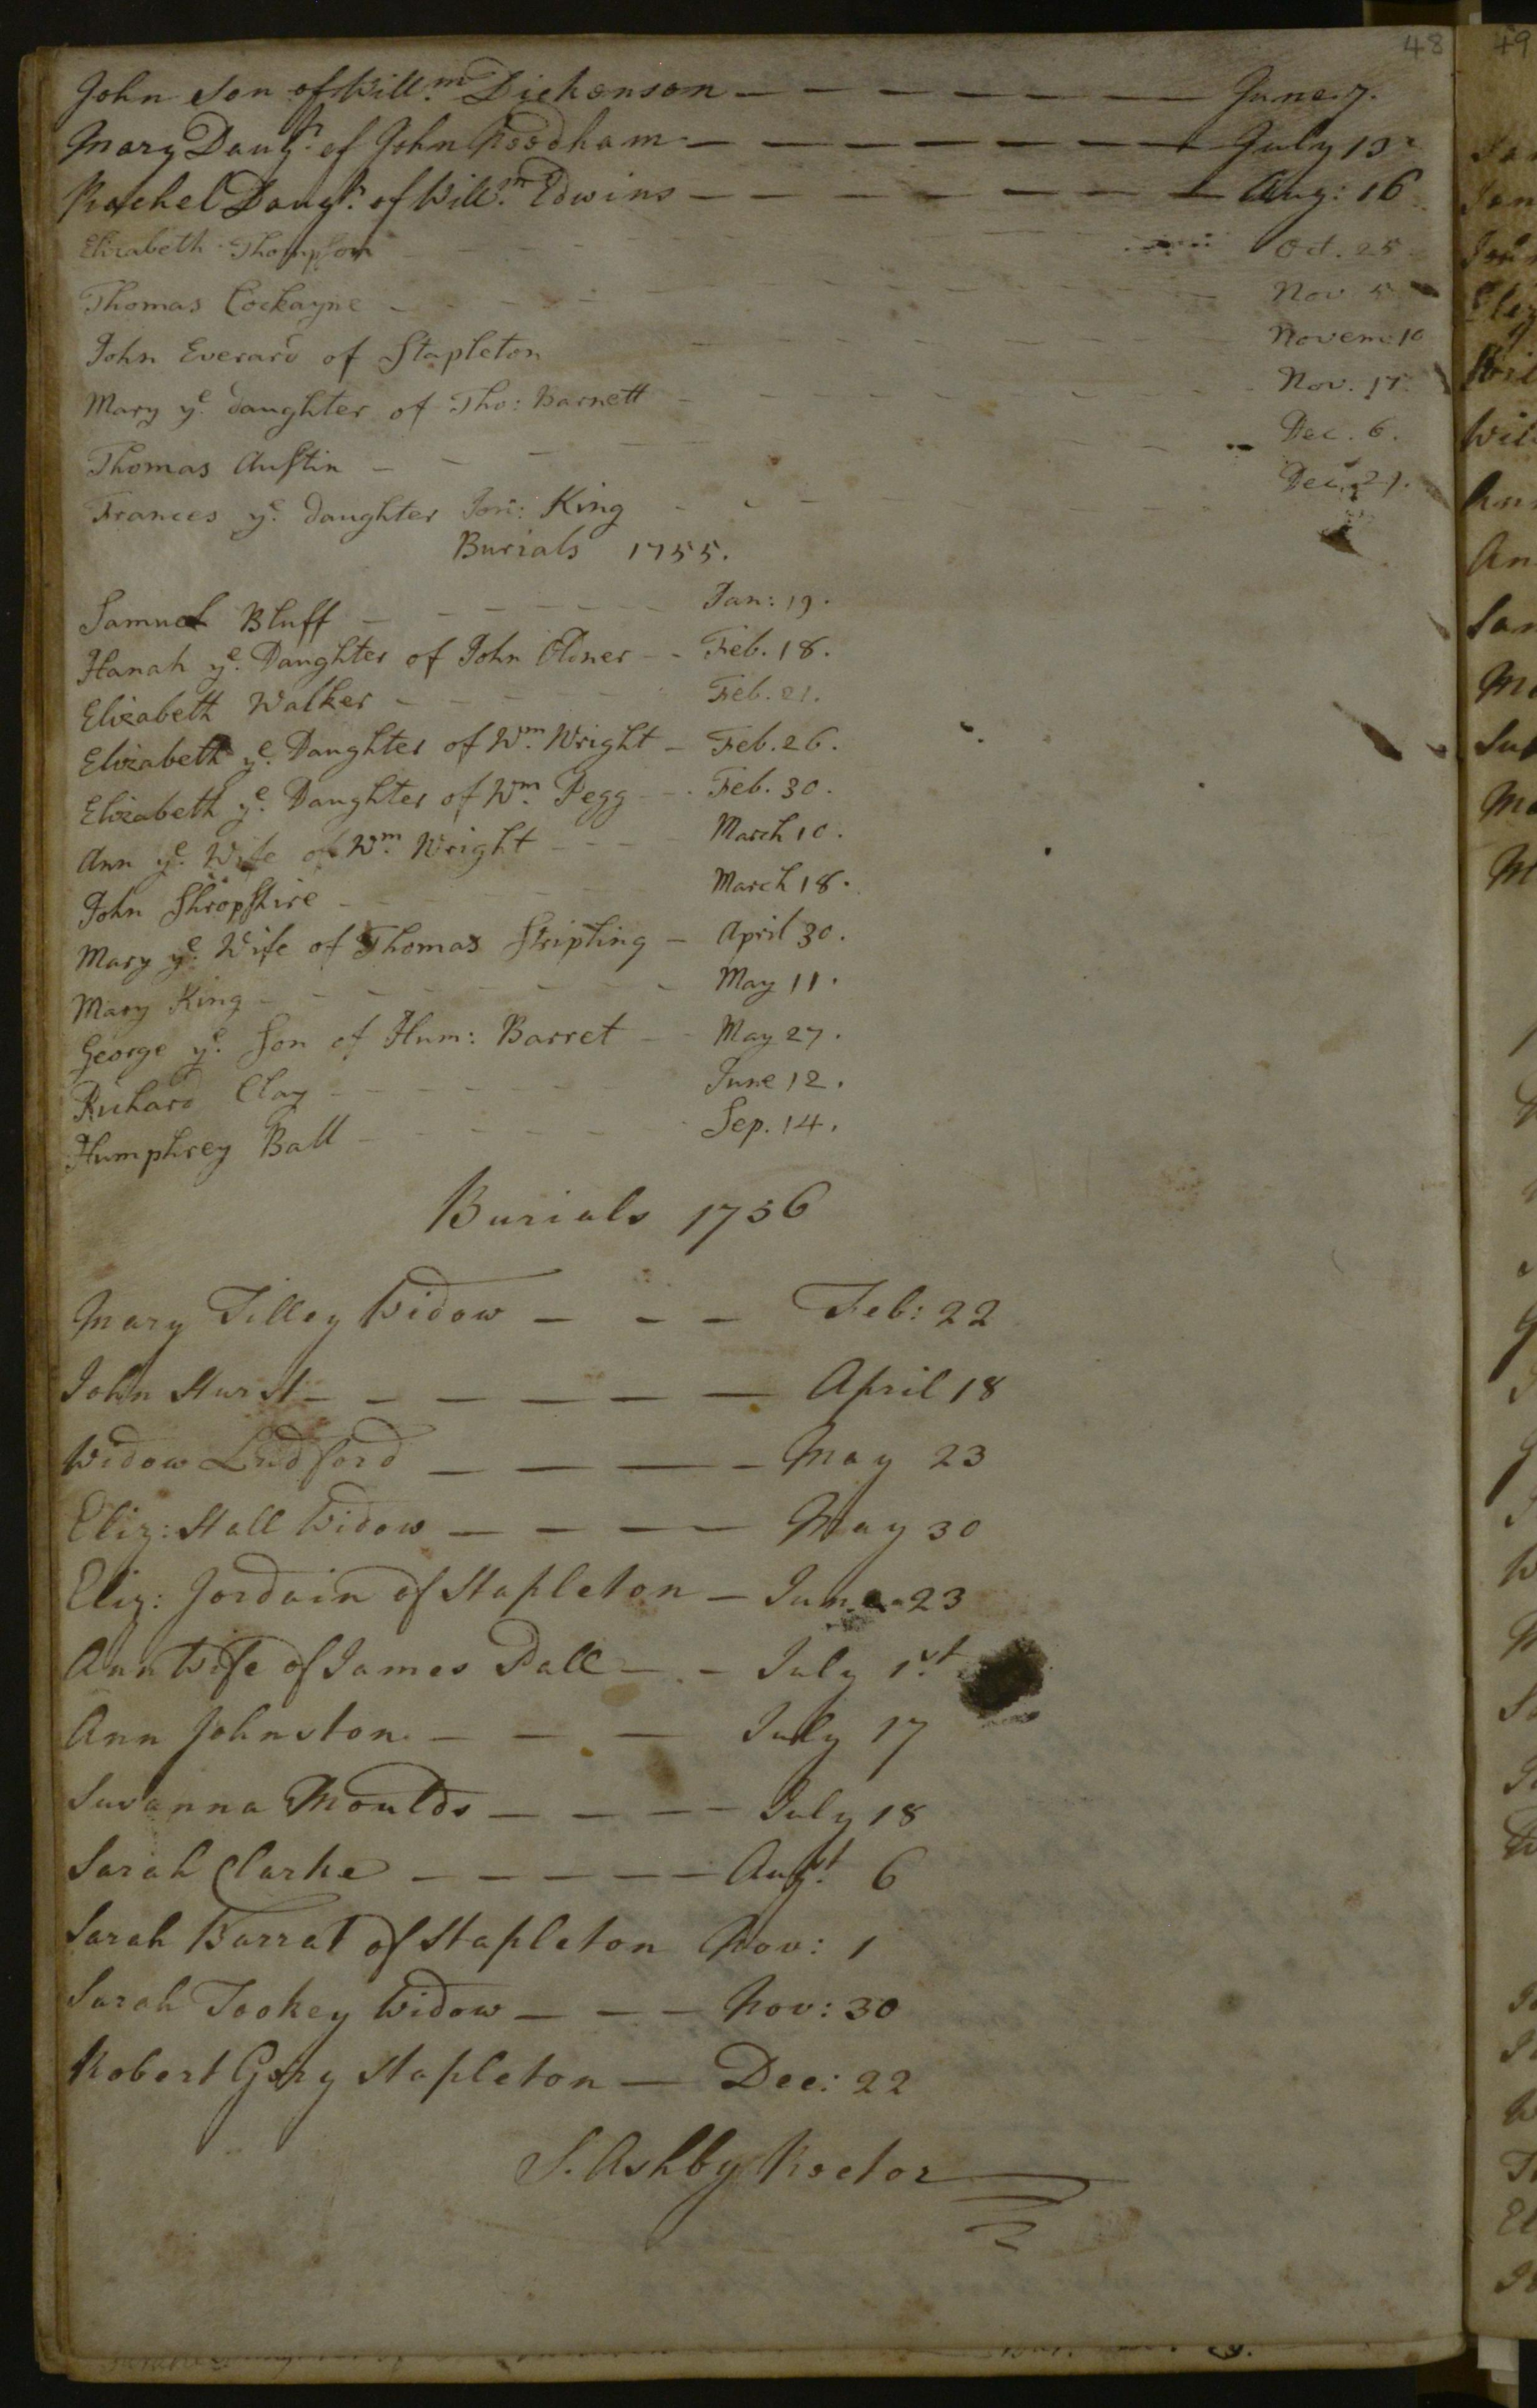 48
John Son of Will.m Dickenson — — — — — — June 7.
Mary Daug.r of John Woodham — — — — — — July 13
Rachel Daug.r of Will.m Edwins — — — — — — Aug: 16
Elizabeth Thompson — — — — Oct. 25
Thomas Cockayne — — — — Nov 5
John Everard of Stapleton — — — — Novem: 10
Mary ye. daughter of Tho: Barnett — — — — Nov. 17.
Thomas Austin — — — — Dec. 6.
Frances ye. daughter Jon: King — — — — Dec. 21.
Burials 1755.
Samuel Bluff — — — — Jan: 19.
Hanah ye. Daughter of John Oldner — - Feb. 18.
Elizabeth Walker — — — — Feb. 21.
Elizabeth ye. Daughter of Wm. Wright — Feb. 26.
Elizabeth ye. Daughter of Wm. Pegg — - Feb. 30.
Ann ye. Wife of Wm. Wright — — — March 10.
John Shropshire — — — — March 18.
Mary ye. Wife of Thomas Stripling — April 30.
Mary King — — — — — May 11.
George ye. Son of Hum: Barret — - May 27.
Richard Clay — — — — June 12.
Humphrey Ball — — — — Sep. 14.
Burials 1756
Mary Tilley Widow — — — Feb: 22
John Hurst — — — — — — April 18
Widow Ludford — — — — May 23
Eliz: Hall Widow — — — — May 30
Eliz: Jordain of Stapleton — June 23
Ann Wife of James Dall — - July 1.st
Ann Johnston. — — — July 17
Susanna Moulds — — — — July 18
Sarah Clarke — — — — — Augst. 6
Sarah Barrat of Stapleton Nov: 1
Sarah Tookey Widow — — — Nov: 30
Robert Gery Stapleton — Dec: 22
S. Ashby Rector